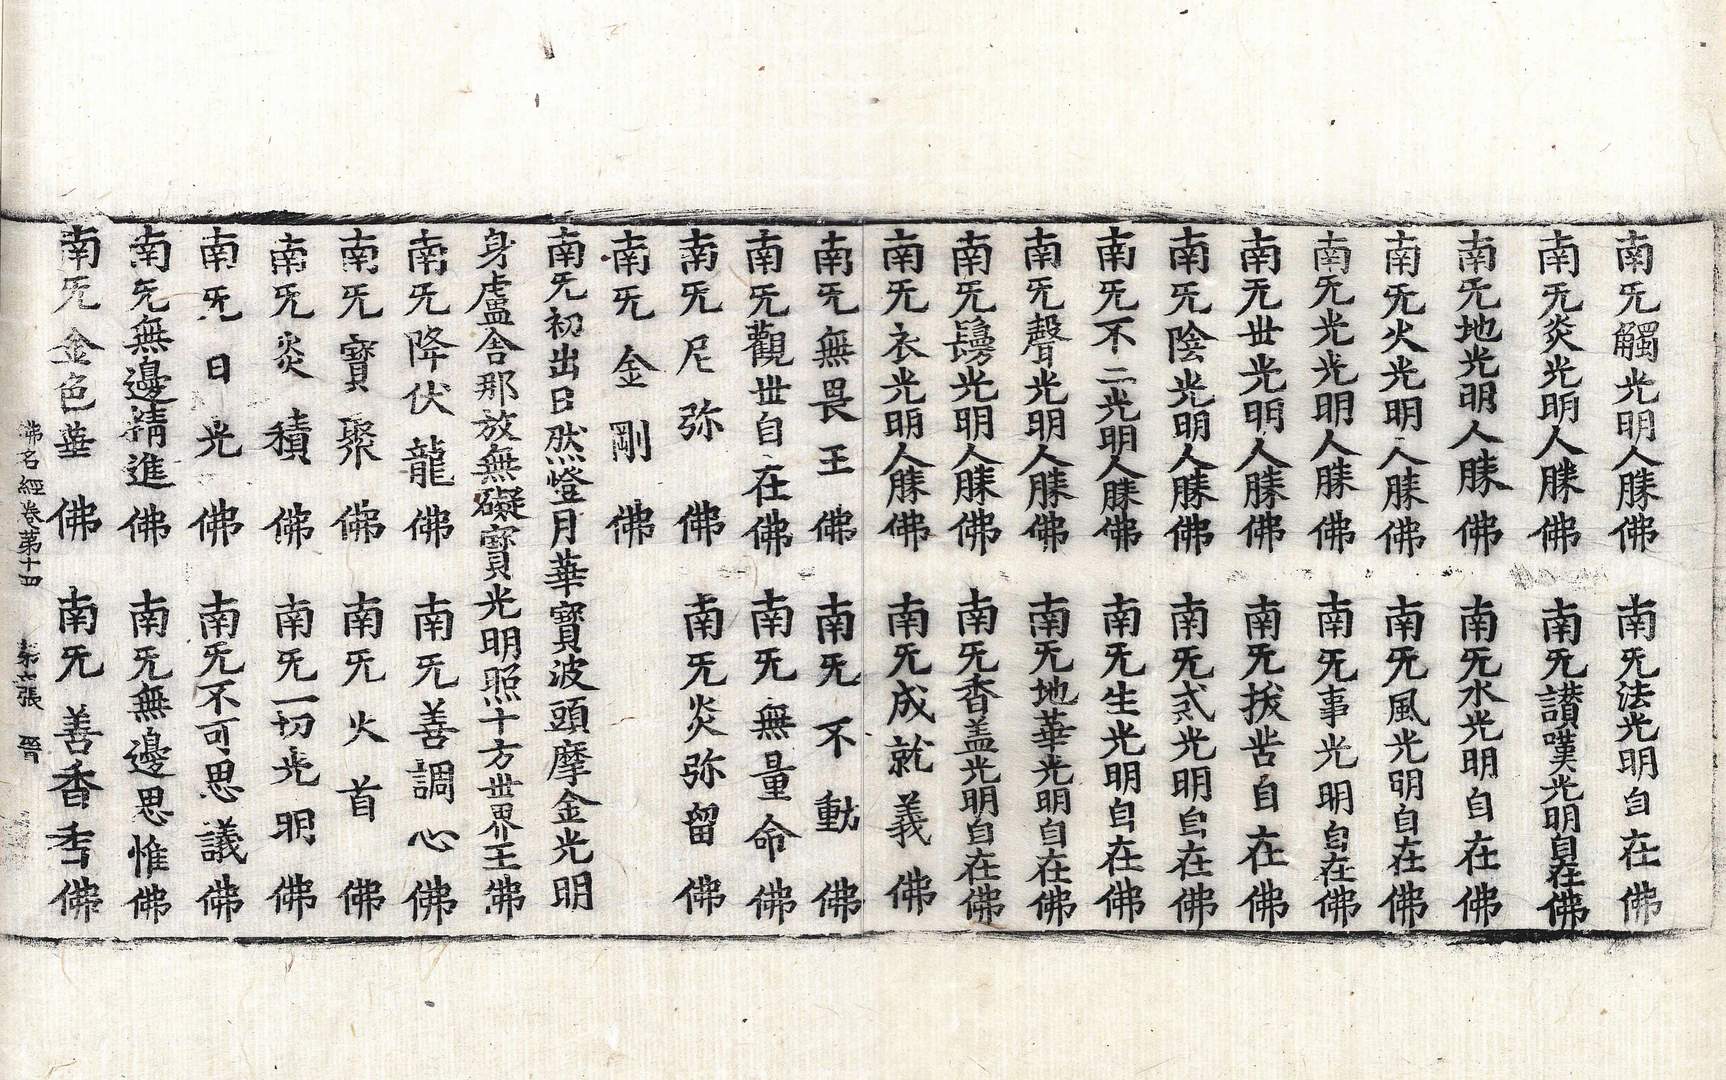 南无觸光明人勝佛　南无法光明自在佛
南无炎光明人勝佛　南无讃嘆光明自在佛
南无地光明人勝佛　南无水光明自在佛
南无火光明人勝佛　南无風光明自在佛
南无光光明人勝佛　南无事光明自在佛
南无世光明人勝佛　南无拔苦自在佛
南无陰光明人勝佛　南无貳光明自在佛
南无不二光明人勝佛　南无生光明自在佛
南无聲光明人勝佛　南无地華光明自在佛
南无鬘光明人勝佛　南无香盖光明自在佛
南无衣光明人勝佛　南无成就義佛
南无無畏王佛　南无不動佛
南无觀世自在佛　南无無量命佛
南无尼弥佛　南无炎弥留佛
南无金剛佛
南无初出日然燈月華寶波頭摩金光明
身盧舍那放無礙寶光明照十方世界王佛
南无降伏龍佛　南无善調心佛
南无寶聚佛　南无火首佛
南无炎積佛　南无一切光明佛
南无日光佛　南无不可思議佛
南无無邊精進佛　南无無邊思惟佛
南无金色華佛　南无善香香佛
佛名經卷第十四　第六張